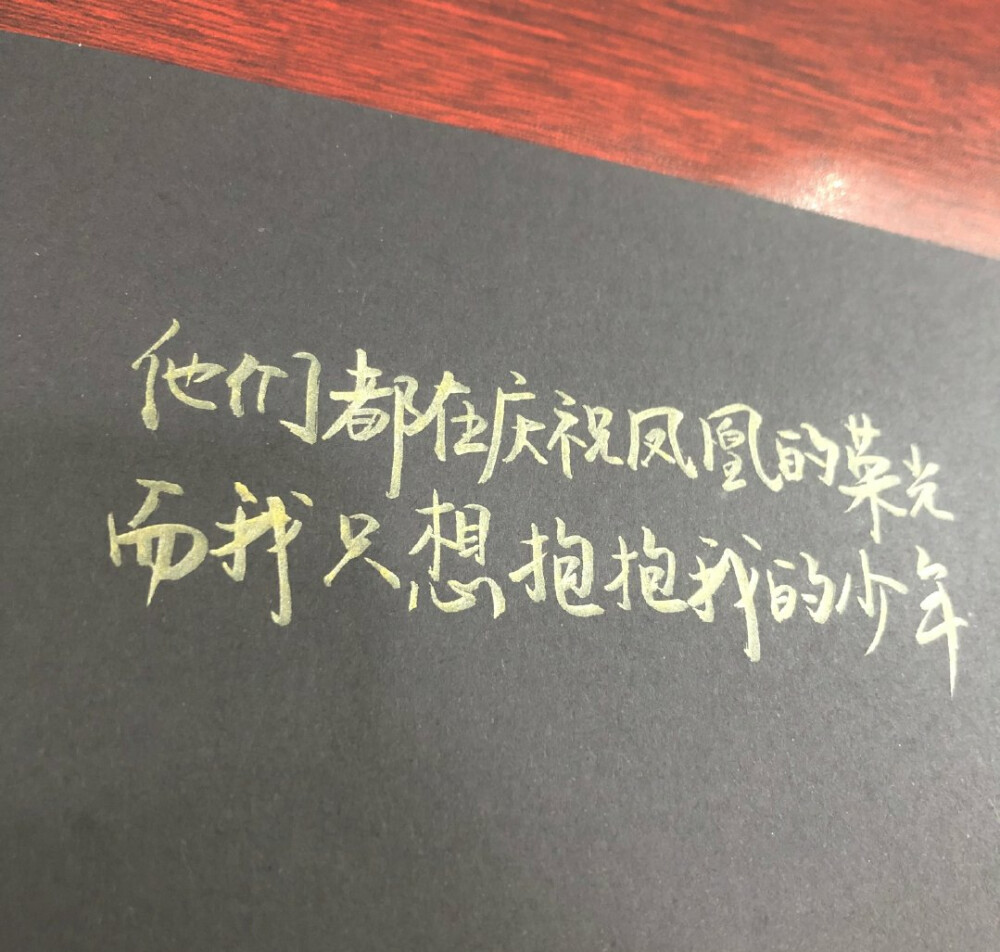 他们都在庆祝凤凰的荣光
而我只想抱抱我的少年